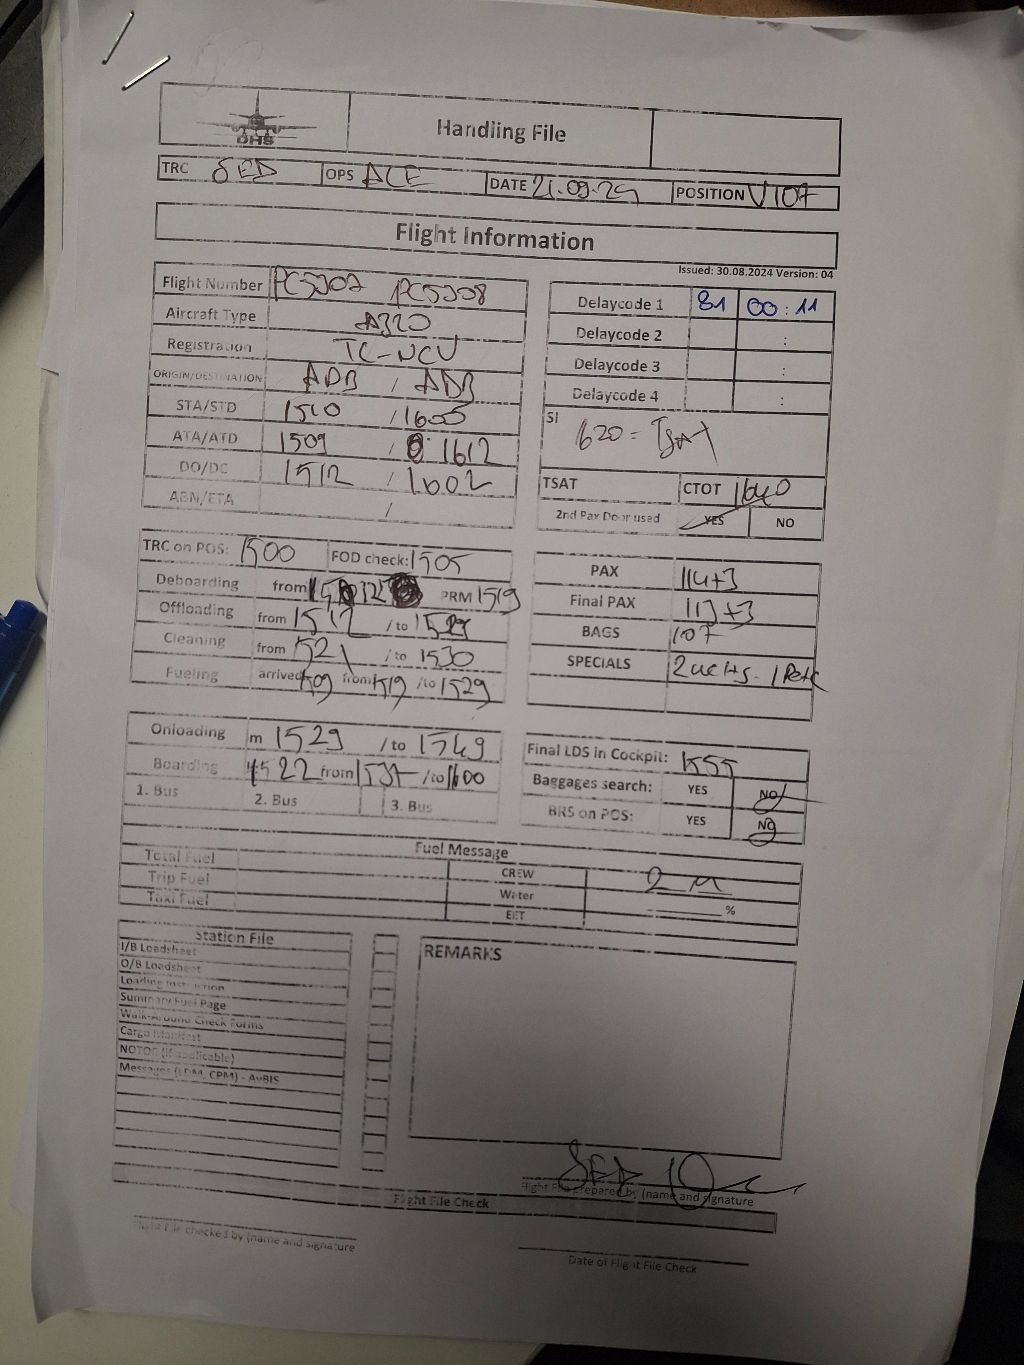 DHS
Handling File
TRC SED OPS ACE DATE 21.09.24 POSITION V107
Flight Information
Issued: 30.08.2024 Version: 04
Flight Number PC5207 PC5208
Aircraft Type A320
Registration TC-NCU
ORIGIN/DESTINATION ADB / ADB
STA/STD 1510 / 1605
ATA/ATD 1509 / 1612
DO/DC 1512 / 1602
ABN/ETA /
Delaycode 1 81 00:11
Delaycode 2 :
Delaycode 3 :
Delaycode 4 :
SI 1620 = TSAT
TSAT CTOT 1640
2nd Pax Door used YES NO
TRC on POS: 1500 FOD check: 1505
Deboarding from PRM 1519
Offloading from 1512 /to 1529
Cleaning from 1521 /to 1530
Fueling arrived 1509 from 1519 /to 1529
PAX 114+3
Final PAX 113+3
BAGS 107
SPECIALS 2
Onloading m 1529 /to 1549
Boarding 1522 from 1537 /to 1600
1. Bus 2. Bus 3. Bus
Final LDS in Cockpit: 1555
Baggages search: YES NO
BRS on POS: YES NO
Fuel Message
Total Fuel
Trip Fuel
Taxi Fuel
CREW 2
Water %
EET
Station File
I/B Loadsheet
O/B Loadsheet
Loading Instruction
Summary Fuel Page
Walk-Around Check Forms
Cargo Manifest
NOTOC (if applicable)
Messages (LDM, CPM) - AvBIS
REMARKS
SED
Flight File prepared by (name and signature
Flight File Check
Flight File checked by (name and signature
Date of Flight File Check